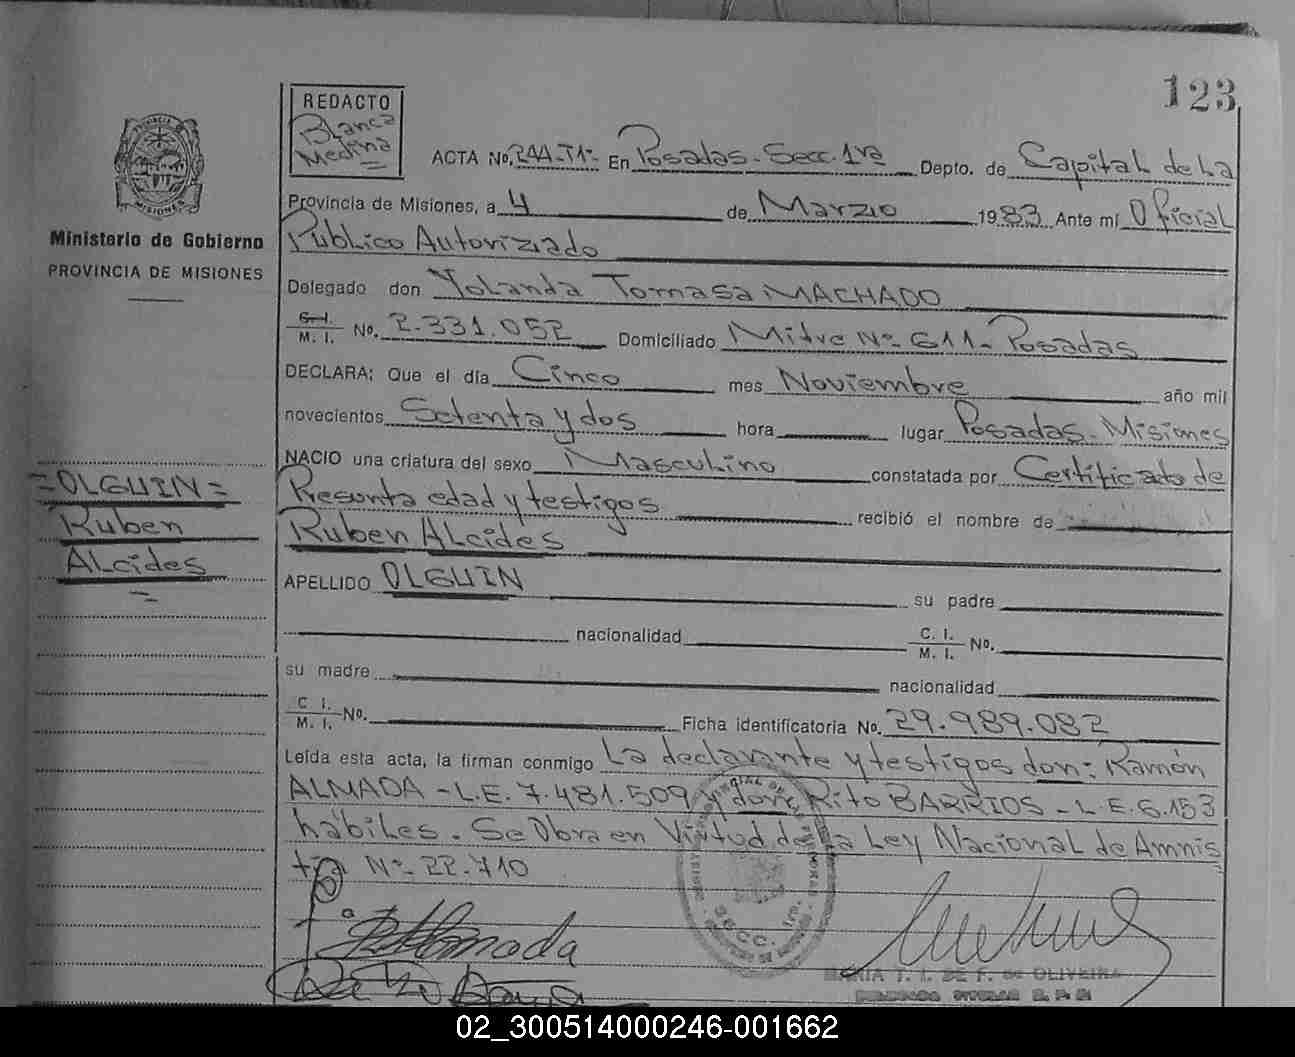 123
REDACTO
Blanca
Medina
ACTA No. 244-T1º- En Posadas- Secc. 1ra Depto. de Capital de La
Provincia de Misiones, a 4 de Marzo 1983 Ante mí Oficial
Publico Autorizado
Delegado don Yolanda Tomasa MACHADO
C. I.
M. I. No. 2.331.052 Domiciliado Mitre Nº- 611- Posadas
DECLARA: Que el día Cinco mes Noviembre año mil
novecientos Setenta y dos hora lugar Posadas- Misiones
NACIO una criatura del sexo Masculino constatada por Certificado de
Presunta edad y testigos recibió el nombre de
Ruben Alcides
APELLIDO OLGUIN su padre
nacionalidad C. I.
M. I. No.
su madre nacionalidad
C. I.
M. I. No. Ficha identificatoria No. 29.989.082
Leída esta acta, la firman conmigo La declarante y testigos don: Ramón
ALMADA - L.E. 7.481.509 y don: Rito BARRIOS - L.E. 6.153
hábiles. Se Obra en Virtud de la Ley Nacional de Amnis
tia Nº- 22.710
PROVINCIA DE
MISIONES
Ministerio de Gobierno
PROVINCIA DE MISIONES
=OLGUIN=
Ruben
Alcides
SECC. 1ra.
MARIA T. I. DE F. de OLIVEIRA
02_300514000246-001662